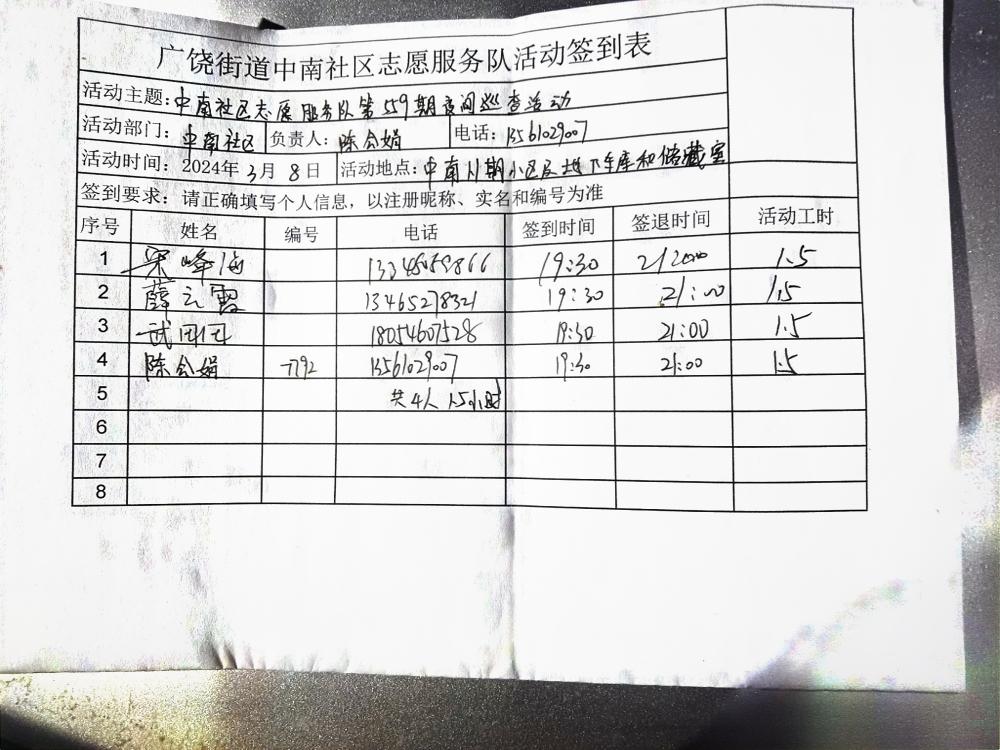 广饶街道中南社区志愿服务队活动签到表
活动主题：中南社区志愿服务队第559期夜间巡查活动
活动部门：中南社区 负责人：陈会娟 电话：13561029007
活动时间：2024年 3月 8日 活动地点：中南 期小区及地下车库和储藏室
签到要求：请正确填写个人信息，以注册昵称、实名和编号为准
序号 姓名 编号 电话 签到时间 签退时间 活动工时
1 宋峰海 19:30 1.5
2 薛云霞 13465278321 19:30 21:00 1.5
3 武团团 18054607528 19:30 21:00 1.5
4 陈会娟 -7792 13561029007 19:30 21:00 1.5
5 共4人 1.5小时
6
7
8